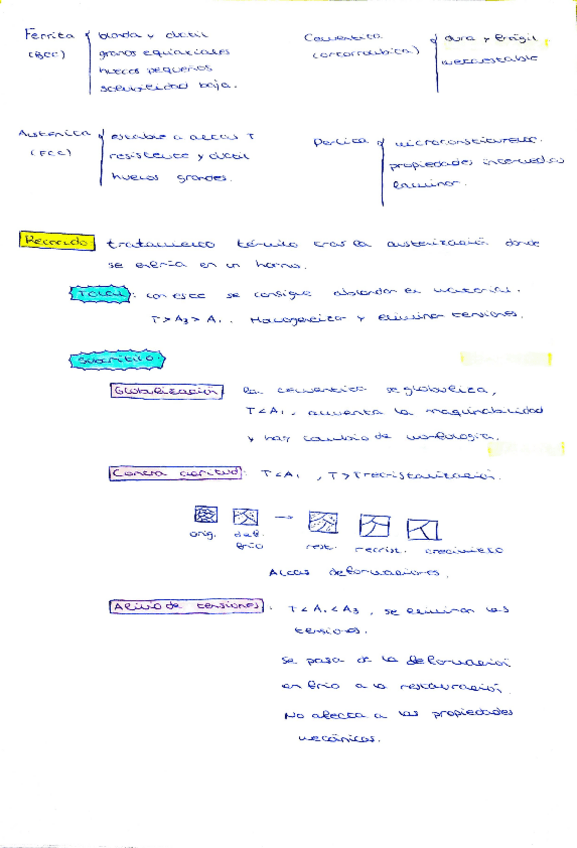 Ferrita blanda y dúctil
(BCC) granos equiaxiales
huecos pequeños
solubilidad baja.
Cementita dura y frágil
(ortorrómbica) metaestable
Austenita estable a altas T
(FCC) resistente y dúctil
huecos grandes.
Perlita microconstituyente.
propiedades intermedias
laminar.
Recocido tratamiento térmico tras la austenización donde
se enfría en un horno.
Total: con este se consigue ablandar el material.
T > A3 > A1. Homogeneiza y elimina tensiones.
Subcrítico
Globulización la cementita se globuliza,
T < A1, aumenta la maquinabilidad
y hay cambio de morfología.
Contra acritud: T < A1, T > Trecristalización.
orig. def. frío → rest. recrist. crecimiento
Altas deformaciones.
Alivio de tensiones: T < A1 < A3, se eliminan las
tensiones.
se pasa de la deformación
en frío a la restauración.
No afecta a las propiedades
mecánicas.